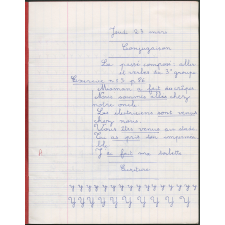 Jeudi 23 mars
Conjugaison
Le passé composé : aller
et verbes du 3e groupe
Exercice n° 3 p. 86
Maman a fait
Nous sommes allés chez
notre oncle.
Les électriciens sont venus
chez nous.
Vous êtes venus au stade
Tu as pris ton
J' ai fait ma toilette
Ecriture
Y Y Y Y Y Y Y Y